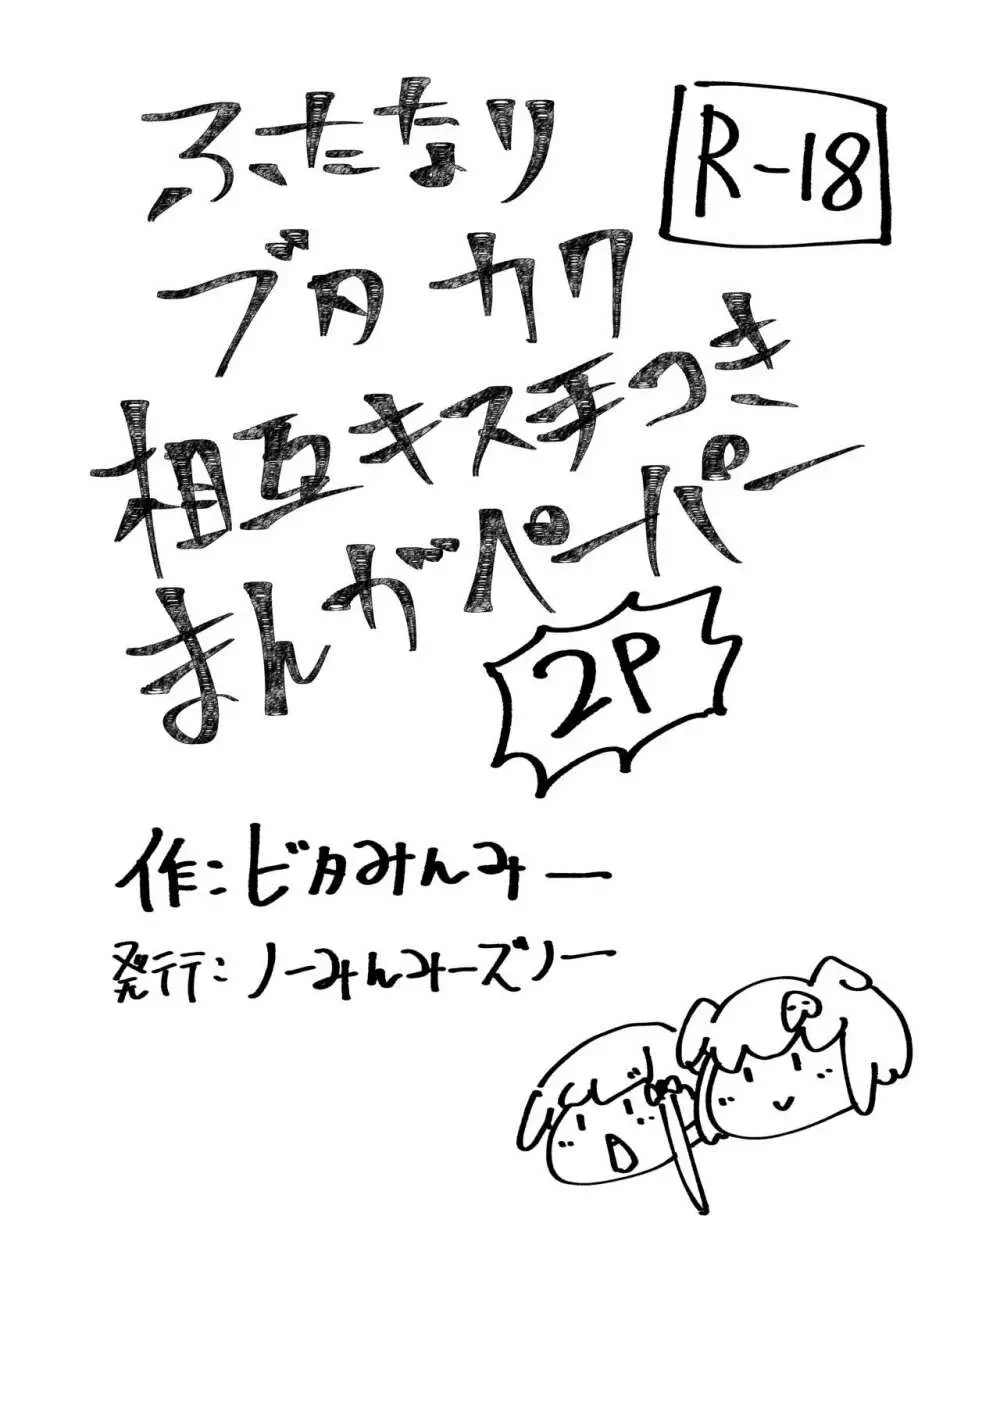 ふたなり
R-18
ブタ カワ
相互キス手つき
まんがペーパー
2P
作:ビタみんみー
発行:ノーみんみーズソー